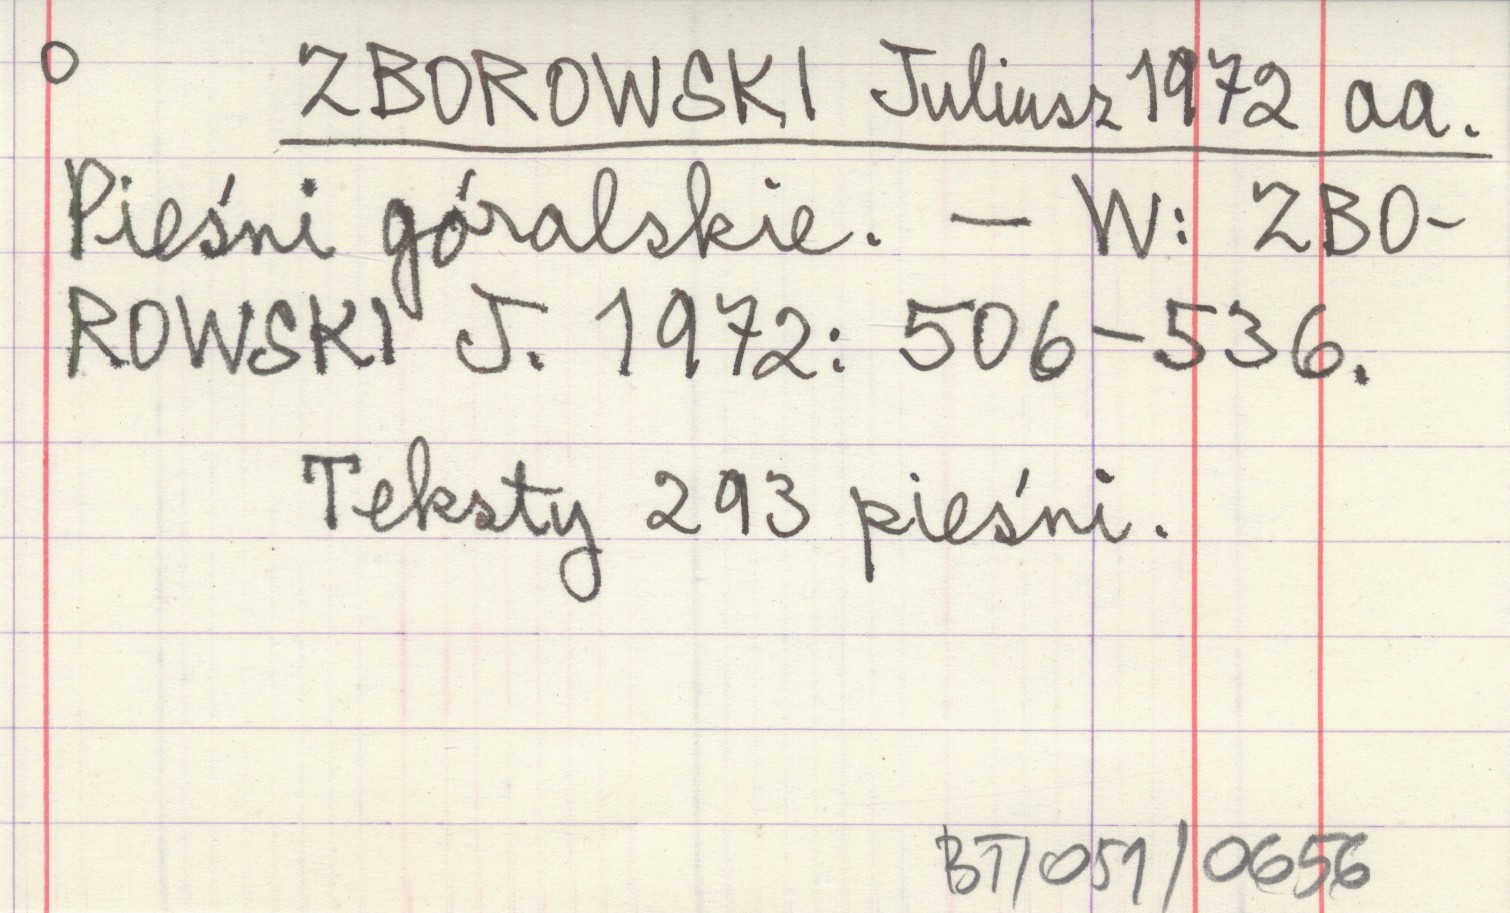 o ZBOROWSKI Juliusz 1972 aa.
Pieśni góralskie. — W: ZBO-
ROWSKI J. 1972: 506-536.
Teksty 293 pieśni.
BT/051/0656